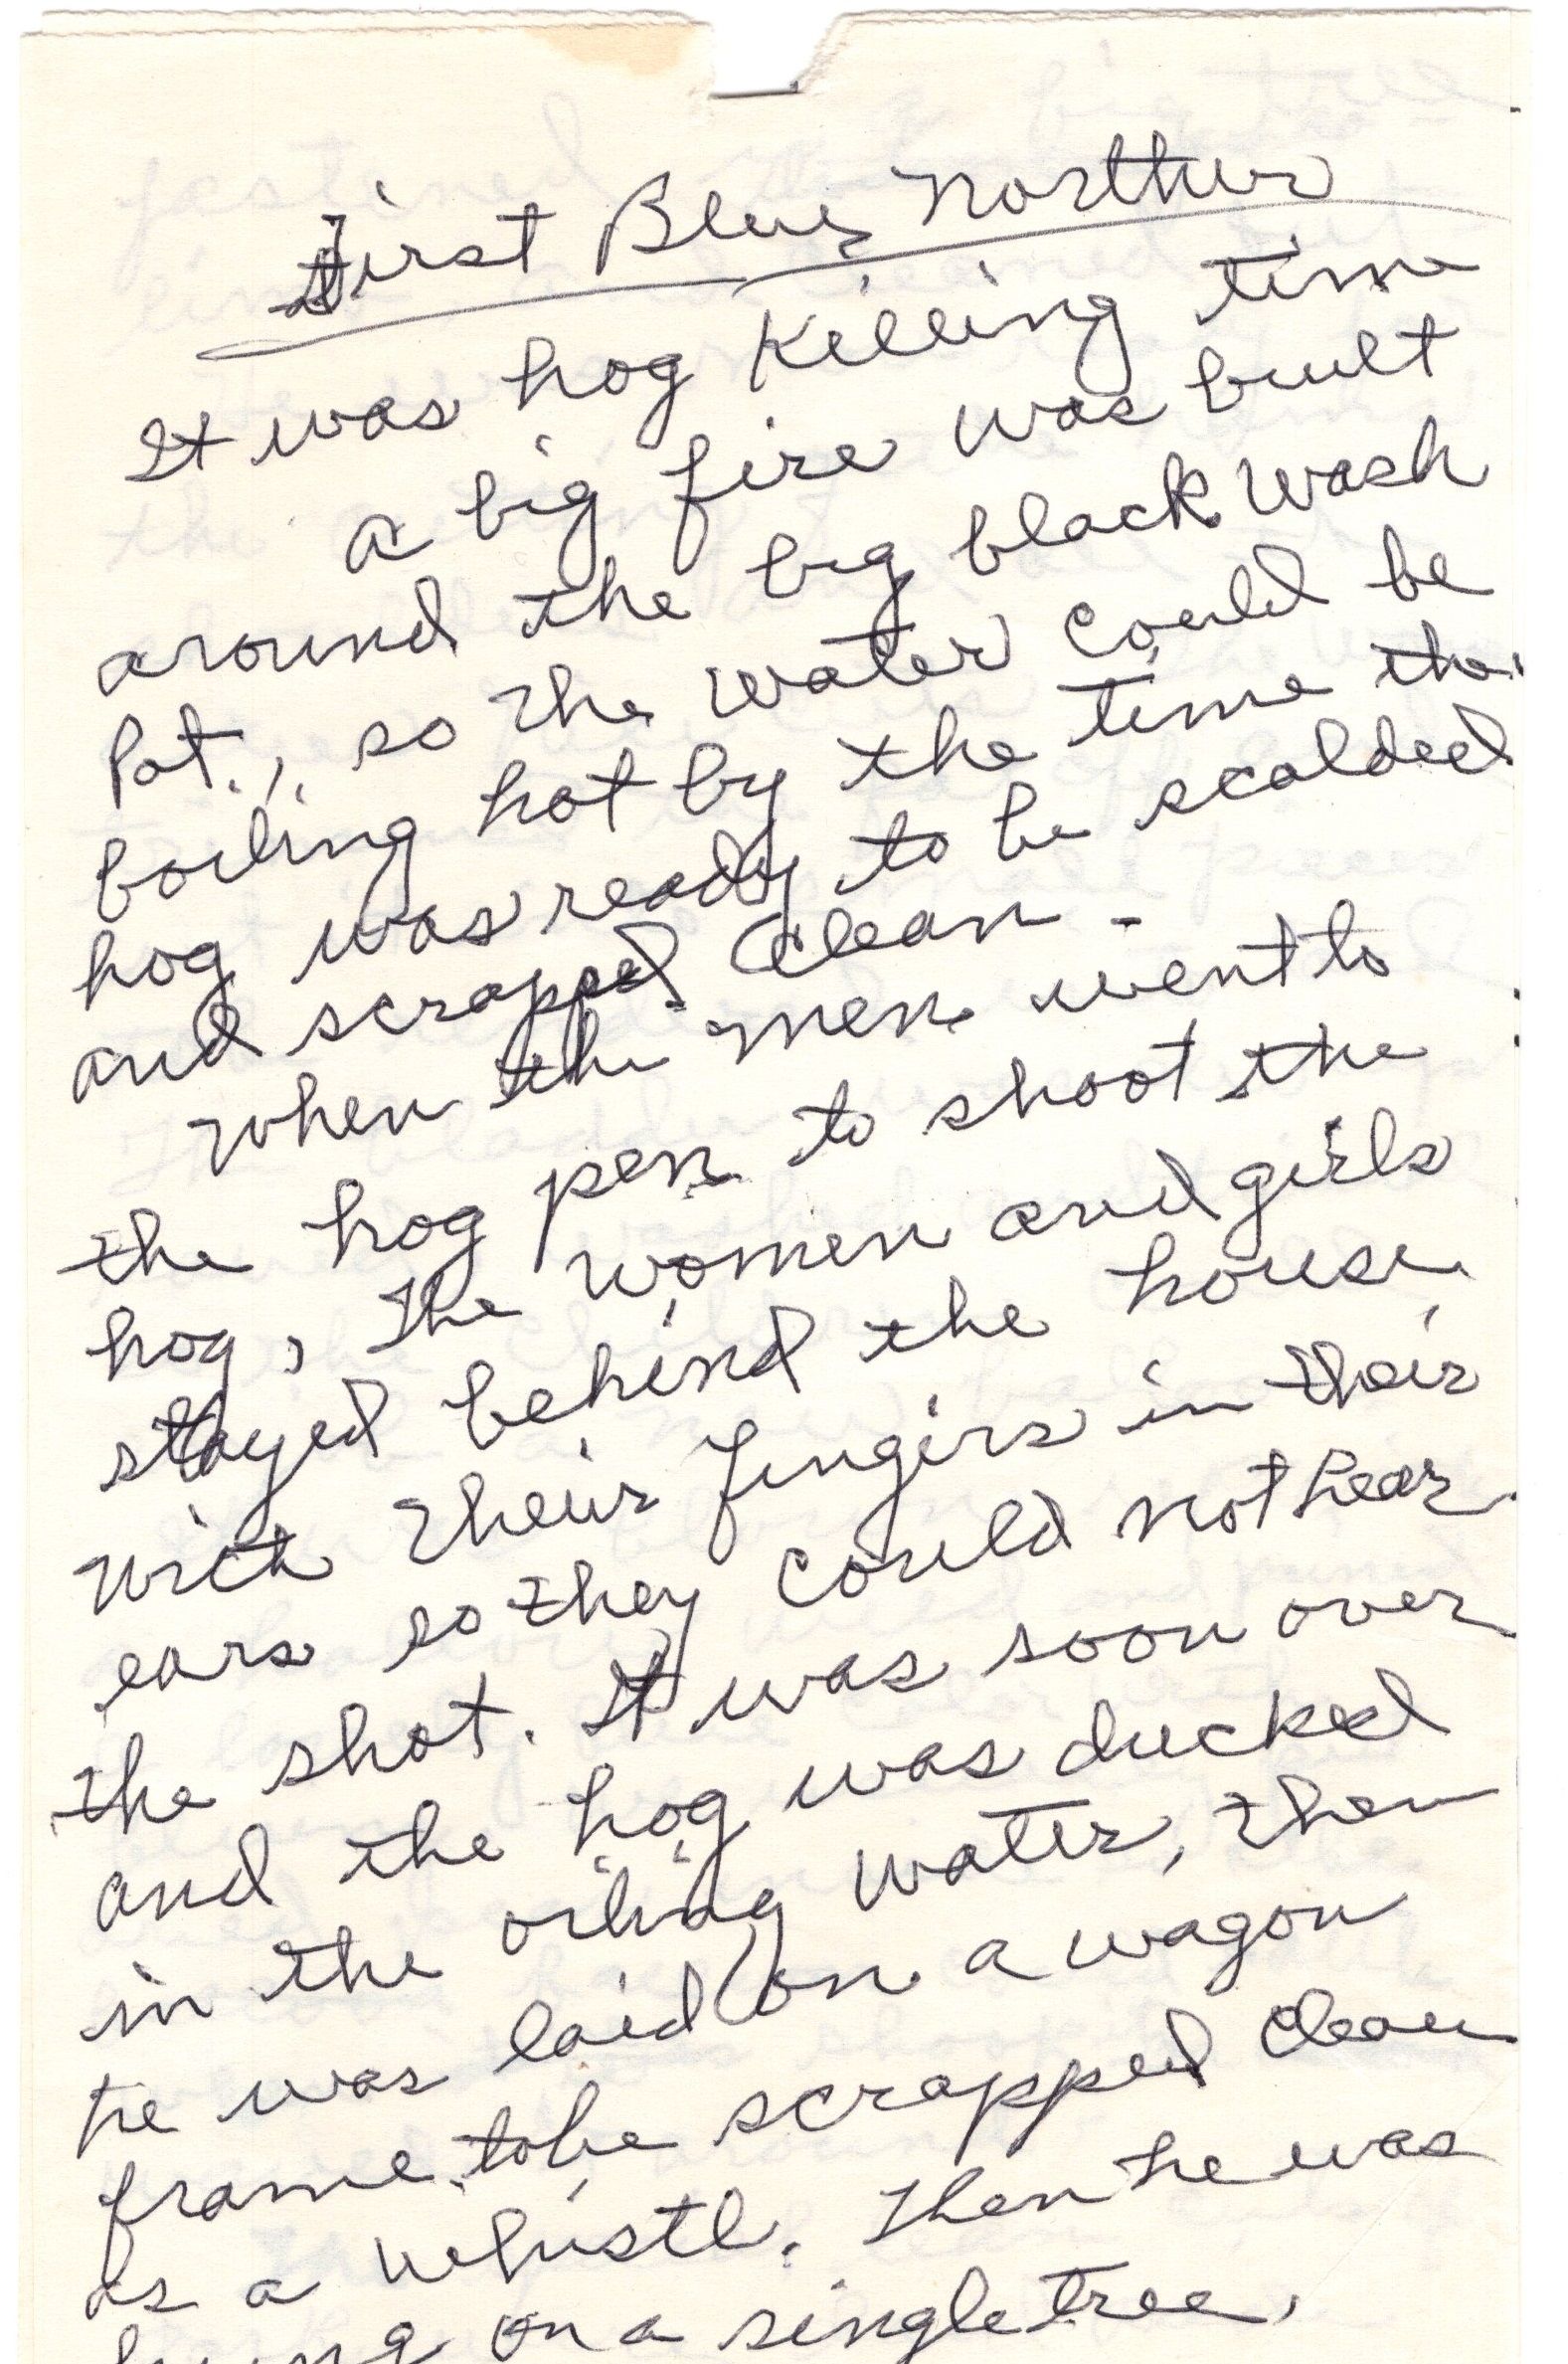 First Blue Norther
It was hog Killing time
a big fire was built
around the big black wash
Pot., so the water could be
boiling hot by the time the
hog was ready to be scalded
and scrapped Clean -
when the men went to
the hog pen to shoot the
hog, The women and girls
stayed behind the house,
with their fingers in their
ears so they could not hear
the shot. It was soon over
and the hog was ducked
in the oiling water, then
he was laid on a wagon
frame to be scrapped Clean
as a whistl. Then he was
hung on a singletree,